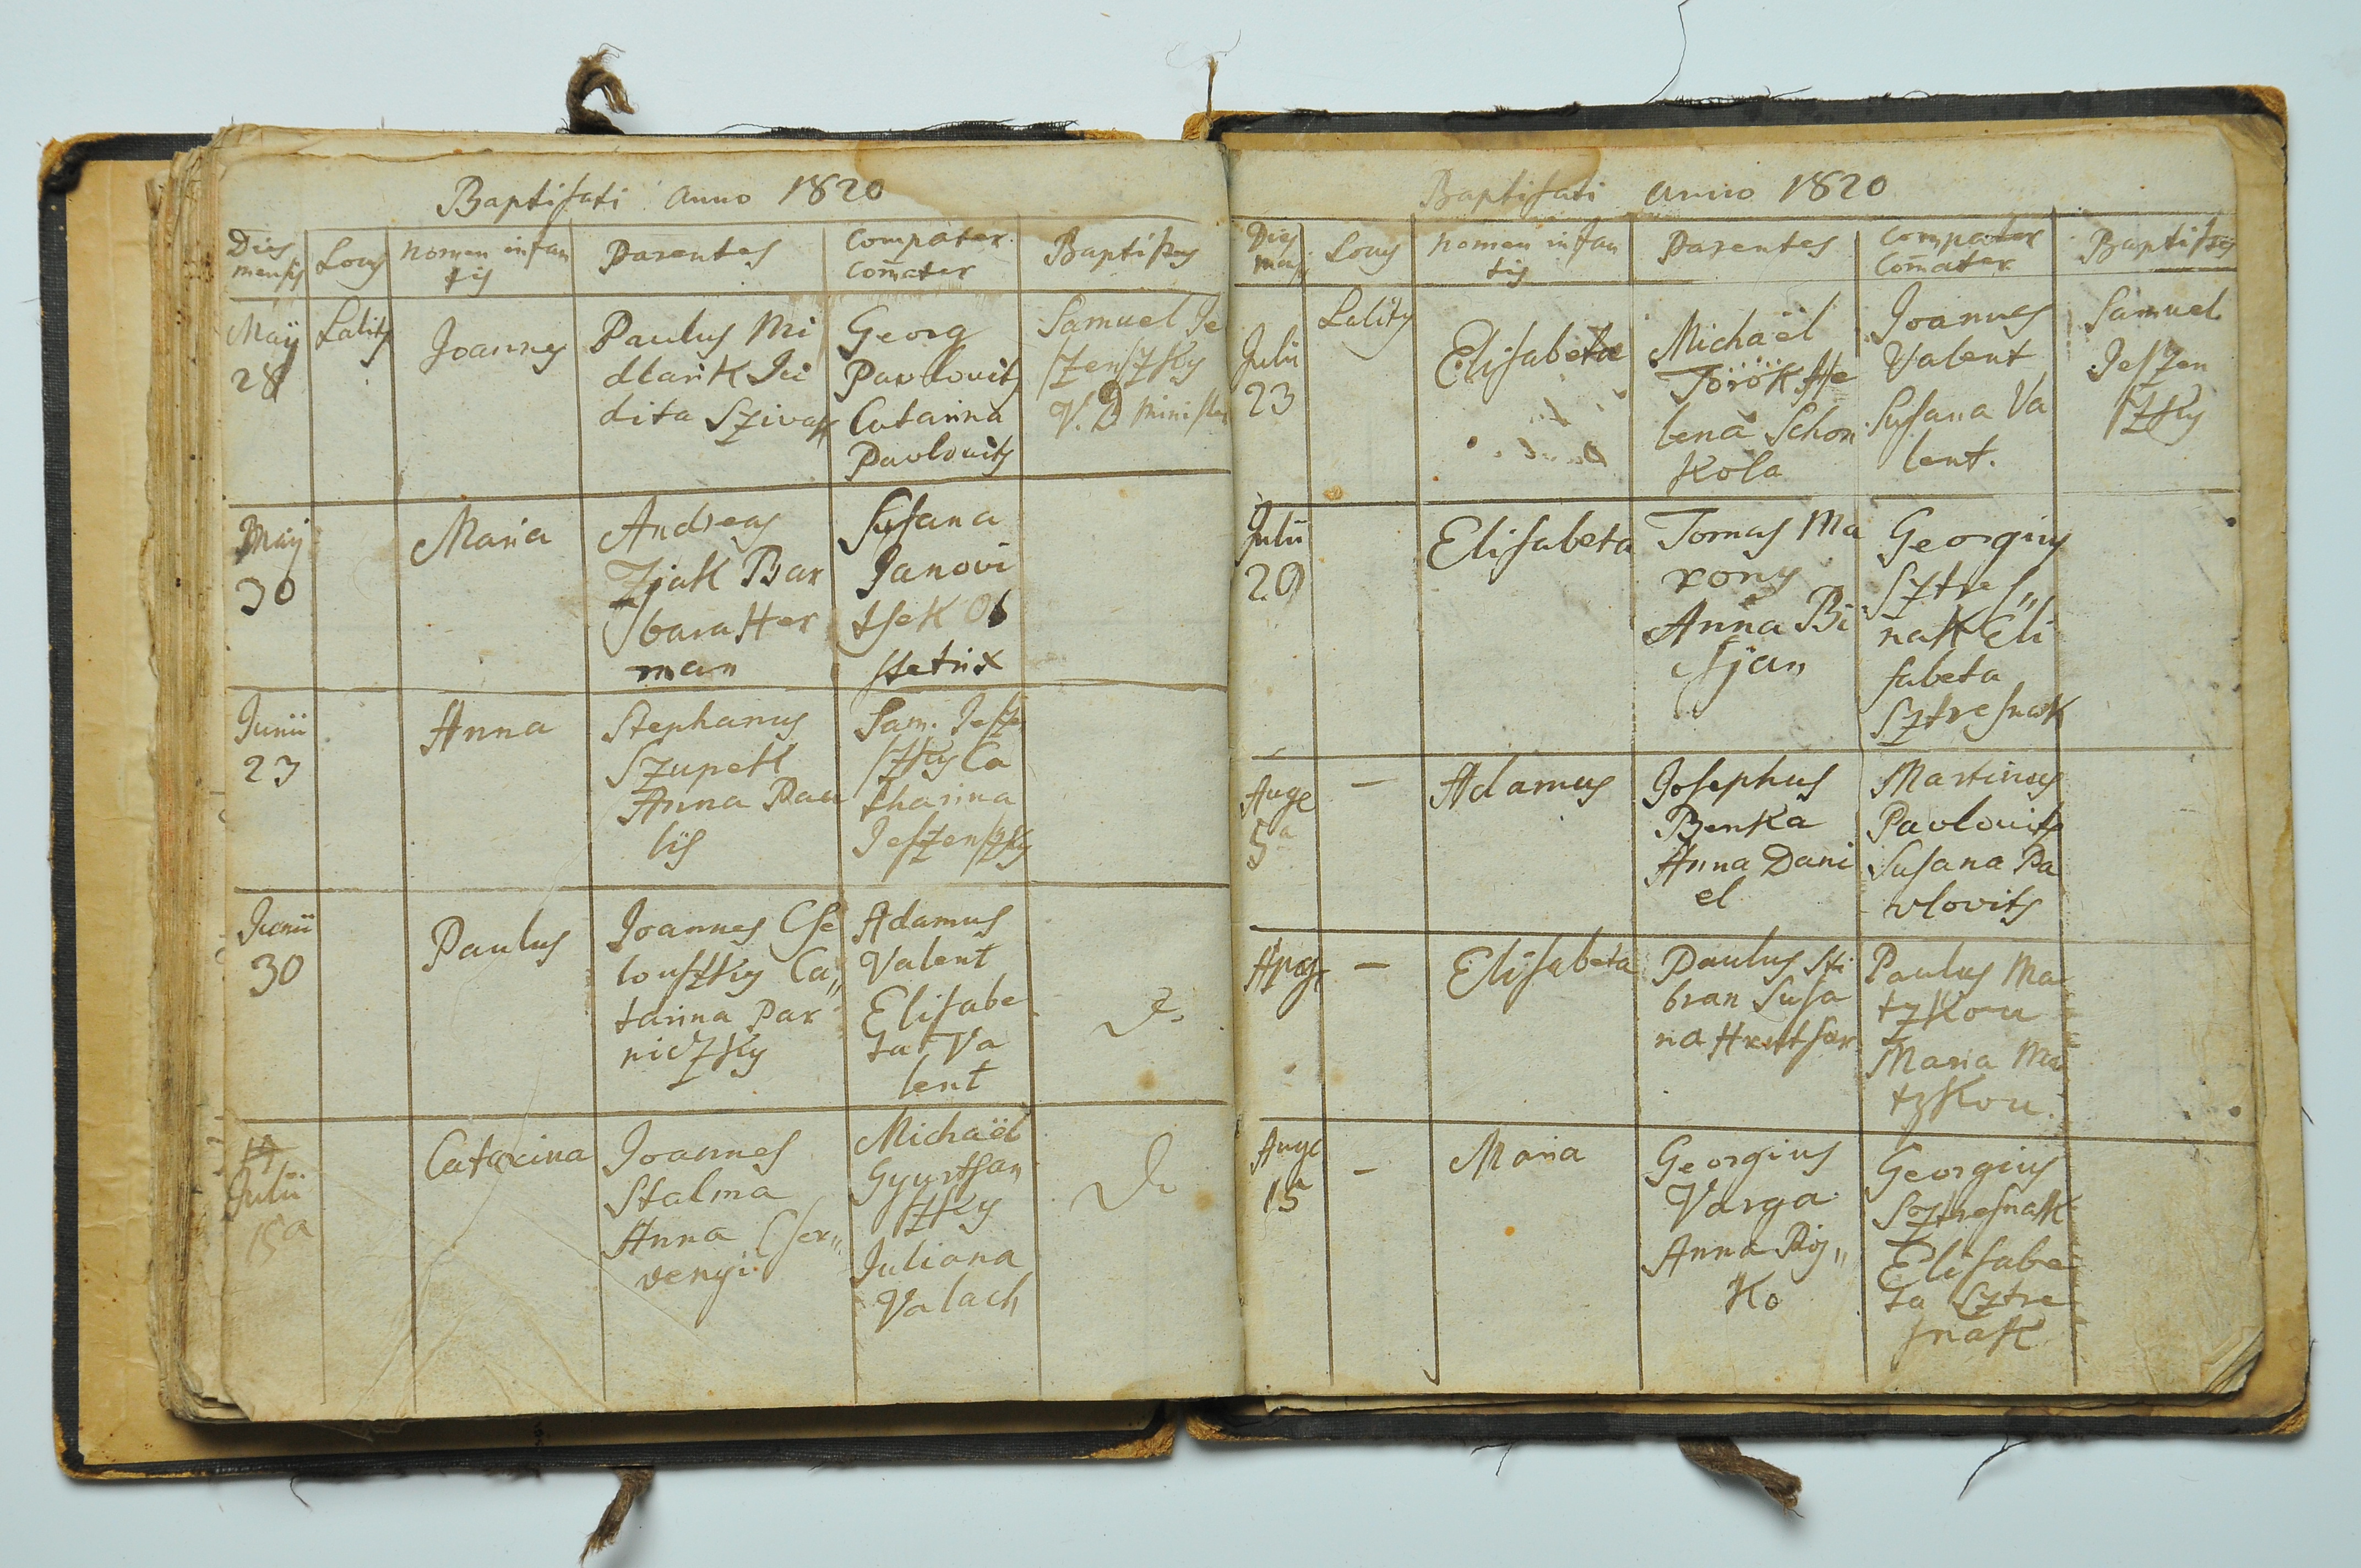 Baptisati Anno 1820
Dies mensis
Locus
Nomen infan
tis
Parentes
Compater
Com̄ater
Baptistes
Maÿ
28
Lality
Joannes
Paulus Mi
dlarik Ju
dita Szivak
Georg
Pavlovits
Catarina
Pavlovits
Samuel Je
szenszky
V. D. Minister
Maÿ
30
Maria
Andreas
Zjak Bar
bara Her
man
Susana
Janovi
tsek Ob
stetrix
Junii
23
Anna
Stephanus
Szupek
Anna Pau
lis
Sam. Jesze
szky Ca
tharina
Jeszenszky
Junii
30
Paulus
Joannes Cse
louszky Ca„
tarina Par
niczky
Adamus
Valent
Elisabe
ta Va
lent
Julii
15a
Catarina
Joannes
Stalma
Anna Cser„
venyi
Michaël
Gyurtsan
szky
Juliana
Valach
Baptisati Anno 1820
Dies
Locus
Nomen infan
tis
Parentes
Compater
Com̄ater
Baptistes
Julii
23
Lality
Elisabeta
Michaël
Török He
lena Schon
Kola
Joannes
Valent
Susana Va
lent.
Samuel
Jeszen
szky
Julii
29
Elisabeta
Tomas Ma
rony
Anna Bi
sjan
Georgius
Sztres„
nak Eli
sabeta
Sztresnak
Auge
5a
—
Adamus
Josephus
Benka
Anna Dani
el
Martinus
Pavlovits
Susana Pa
vlovits
—
Elisabeta
Paulus Sti
bran Susa
na
Paulus Ma
tzkou
Maria Ma
tzkou.
Auge
15
—
Maria
Georgius
Varga
Anna Roj„
ko
Georgius
Sztresnak
Elisabe
ta Sztre
snak